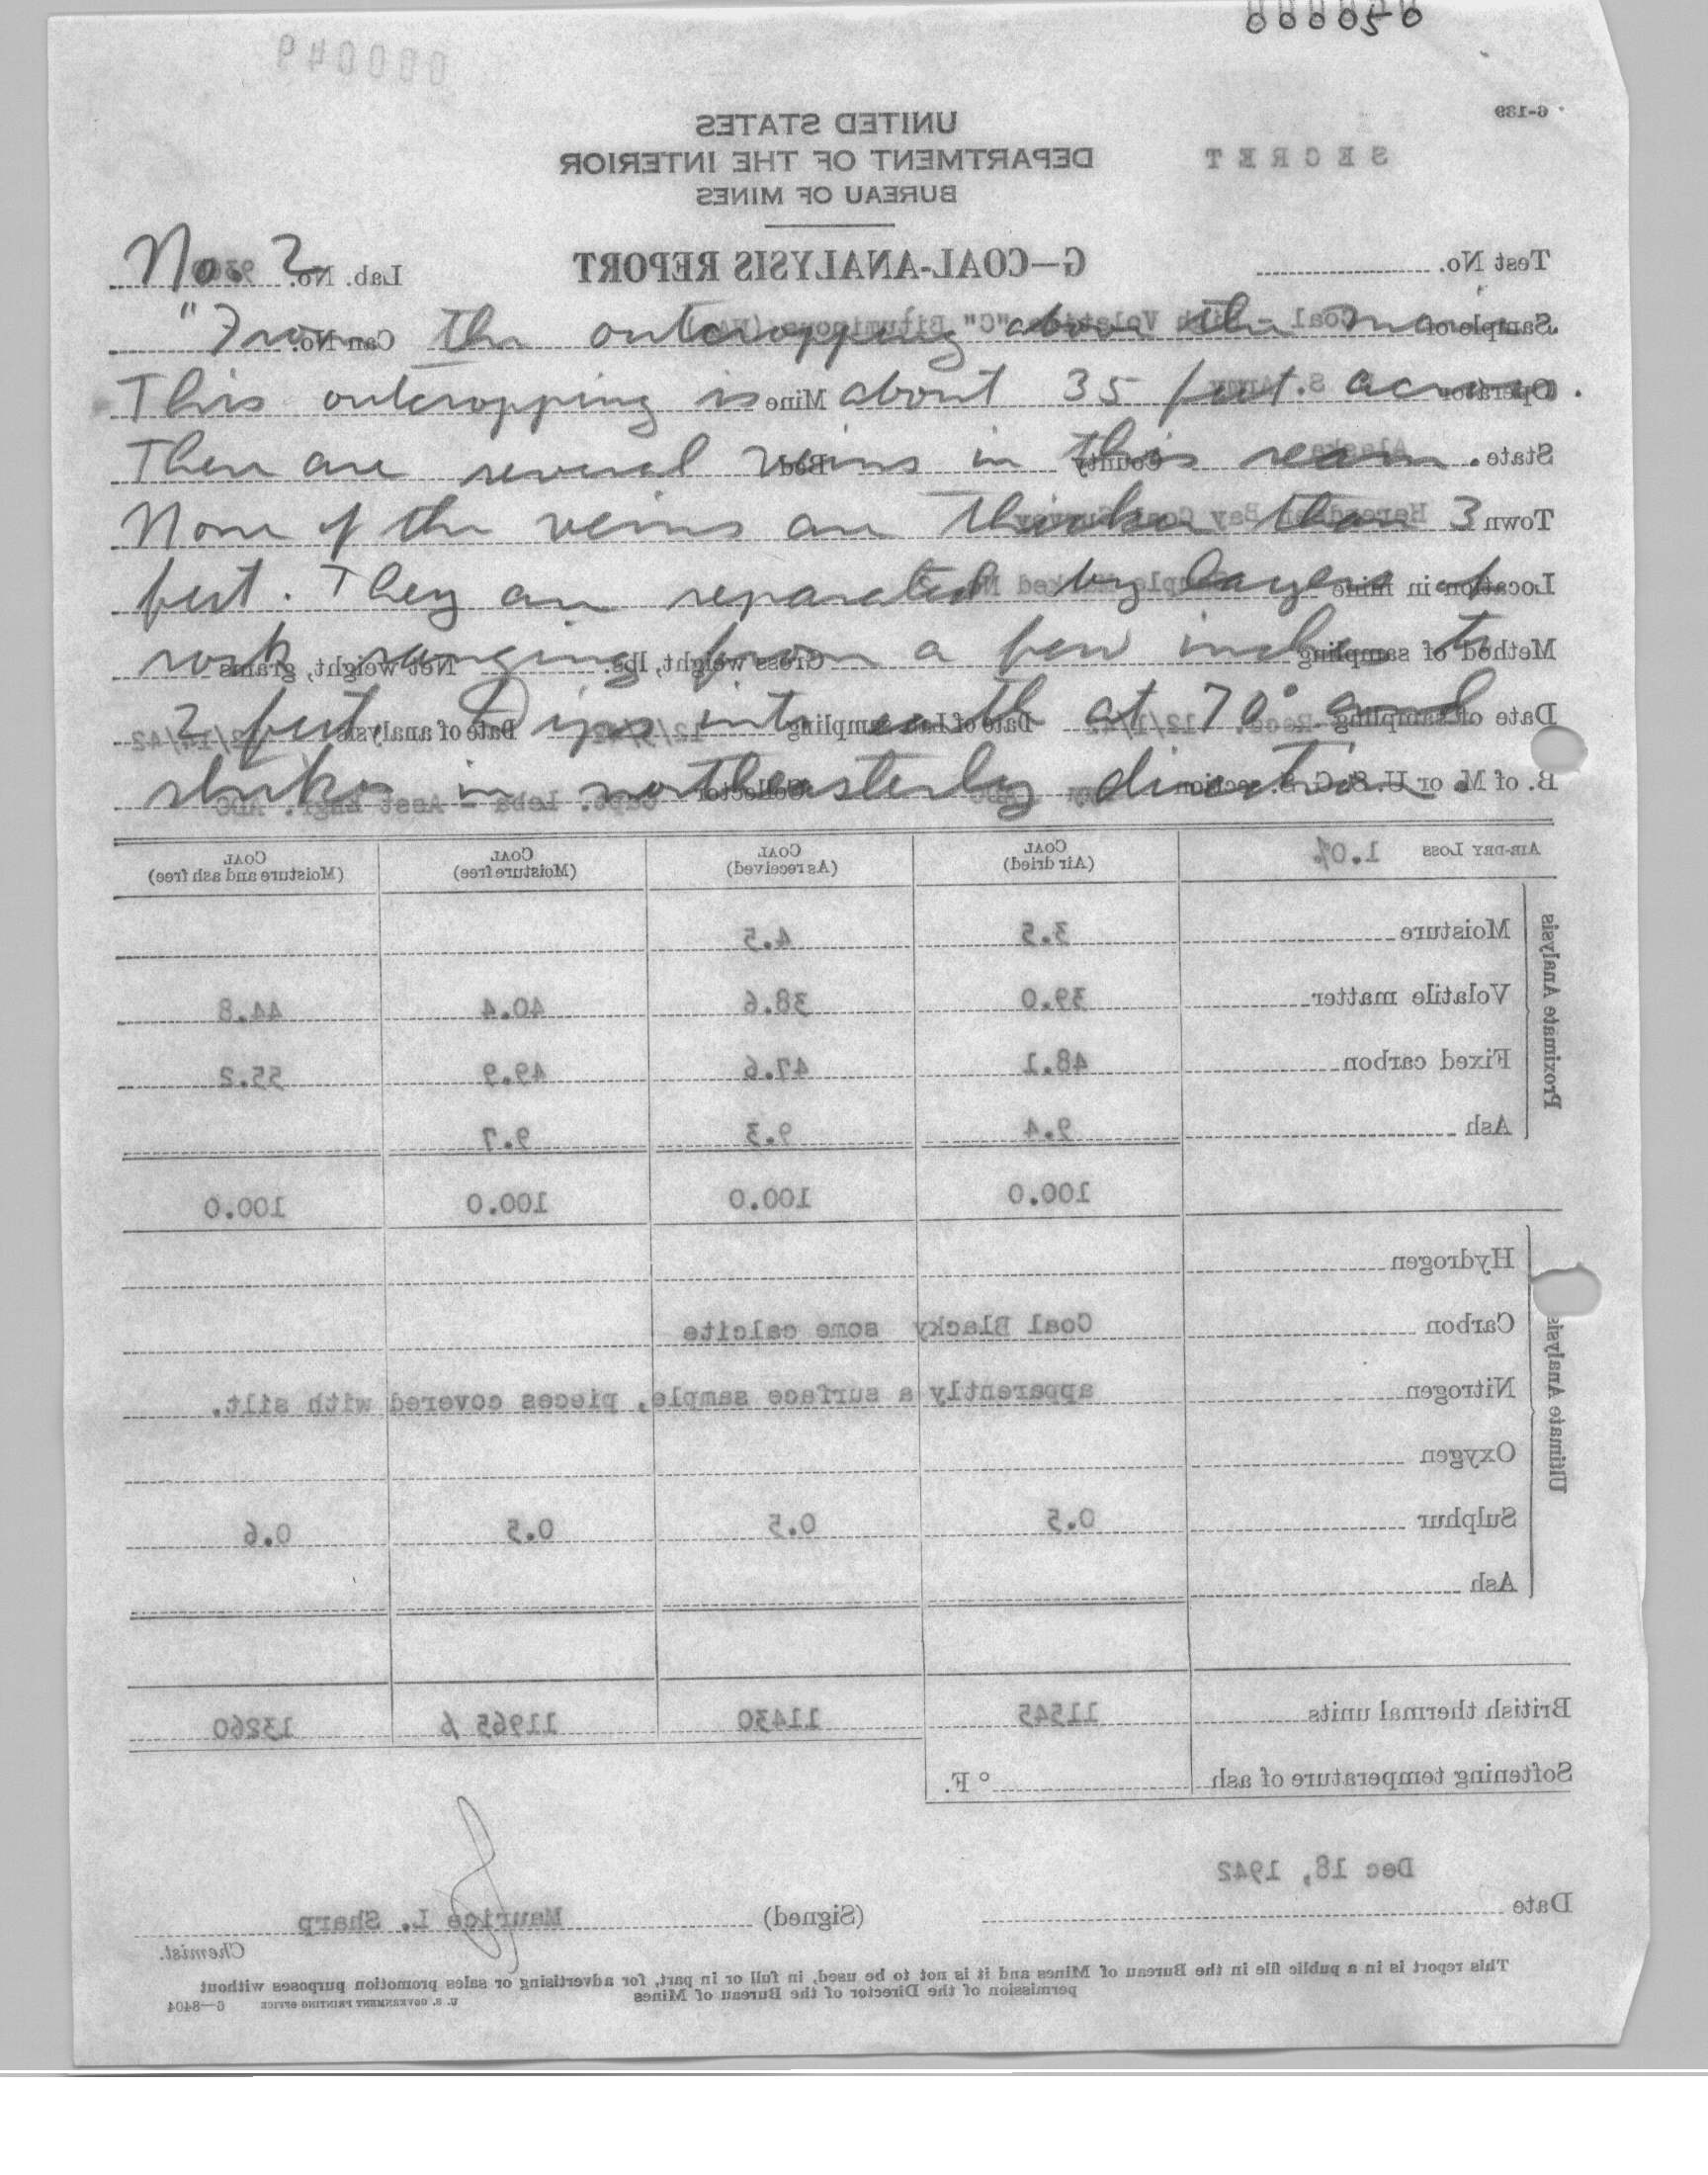 000050
000049
6-139
SECRET
UNITED STATES
DEPARTMENT OF THE INTERIOR
BUREAU OF MINES
G—COAL-ANALYSIS REPORT
Test No.
Lab. No.
No. 2
"From the outcropping above the
This outcropping is about 35 feet across.
There are several veins in this seam.
None of the veins are thicker than 3
feet. They are separated by layers of
rock ranging from a few inches to
2 feet. Dips into earth at 70° and
strikes in northeasterly direction.
Sample of Coal Volatile "C" Bituminous Can No.
Operator Mine
State Alaska County Bed
Town Bay Coal
Location in mine Sample Marked
Method of sampling Gross weight, lbs. Net weight, grams
Date of sampling Date of Lab. sampling Date of analysis
B. of M. or U. S. G. S. section Collector Capt. - Asst Engr. ADC
AIR-DRY LOSS 1.0% COAL (Air dried) COAL (As received) COAL (Moisture free) COAL (Moisture and ash free)
Proximate Analysis
Moisture 3.5 4.5
Volatile matter 39.0 38.6 40.4 44.8
Fixed carbon 48.1 47.6 49.9 55.2
Ash 9.4 9.3 9.7
100.0 100.0 100.0 100.0
Ultimate Analysis
Hydrogen
Carbon Coal Blacky some calcite
Nitrogen apparently a surface sample, pieces covered with silt.
Oxygen
Sulphur 0.5 0.5 0.5 0.6
Ash
British thermal units 11545 11430 11965 13260
Softening temperature of ash ° F.
Date Dec 18, 1942
(Signed) Maurice L. Sharp
Chemist.
This report is in a public file in the Bureau of Mines and it is not to be used, in full or in part, for advertising or sales promotion purposes without
permission of the Director of the Bureau of Mines
U. S. GOVERNMENT PRINTING OFFICE 6—8404